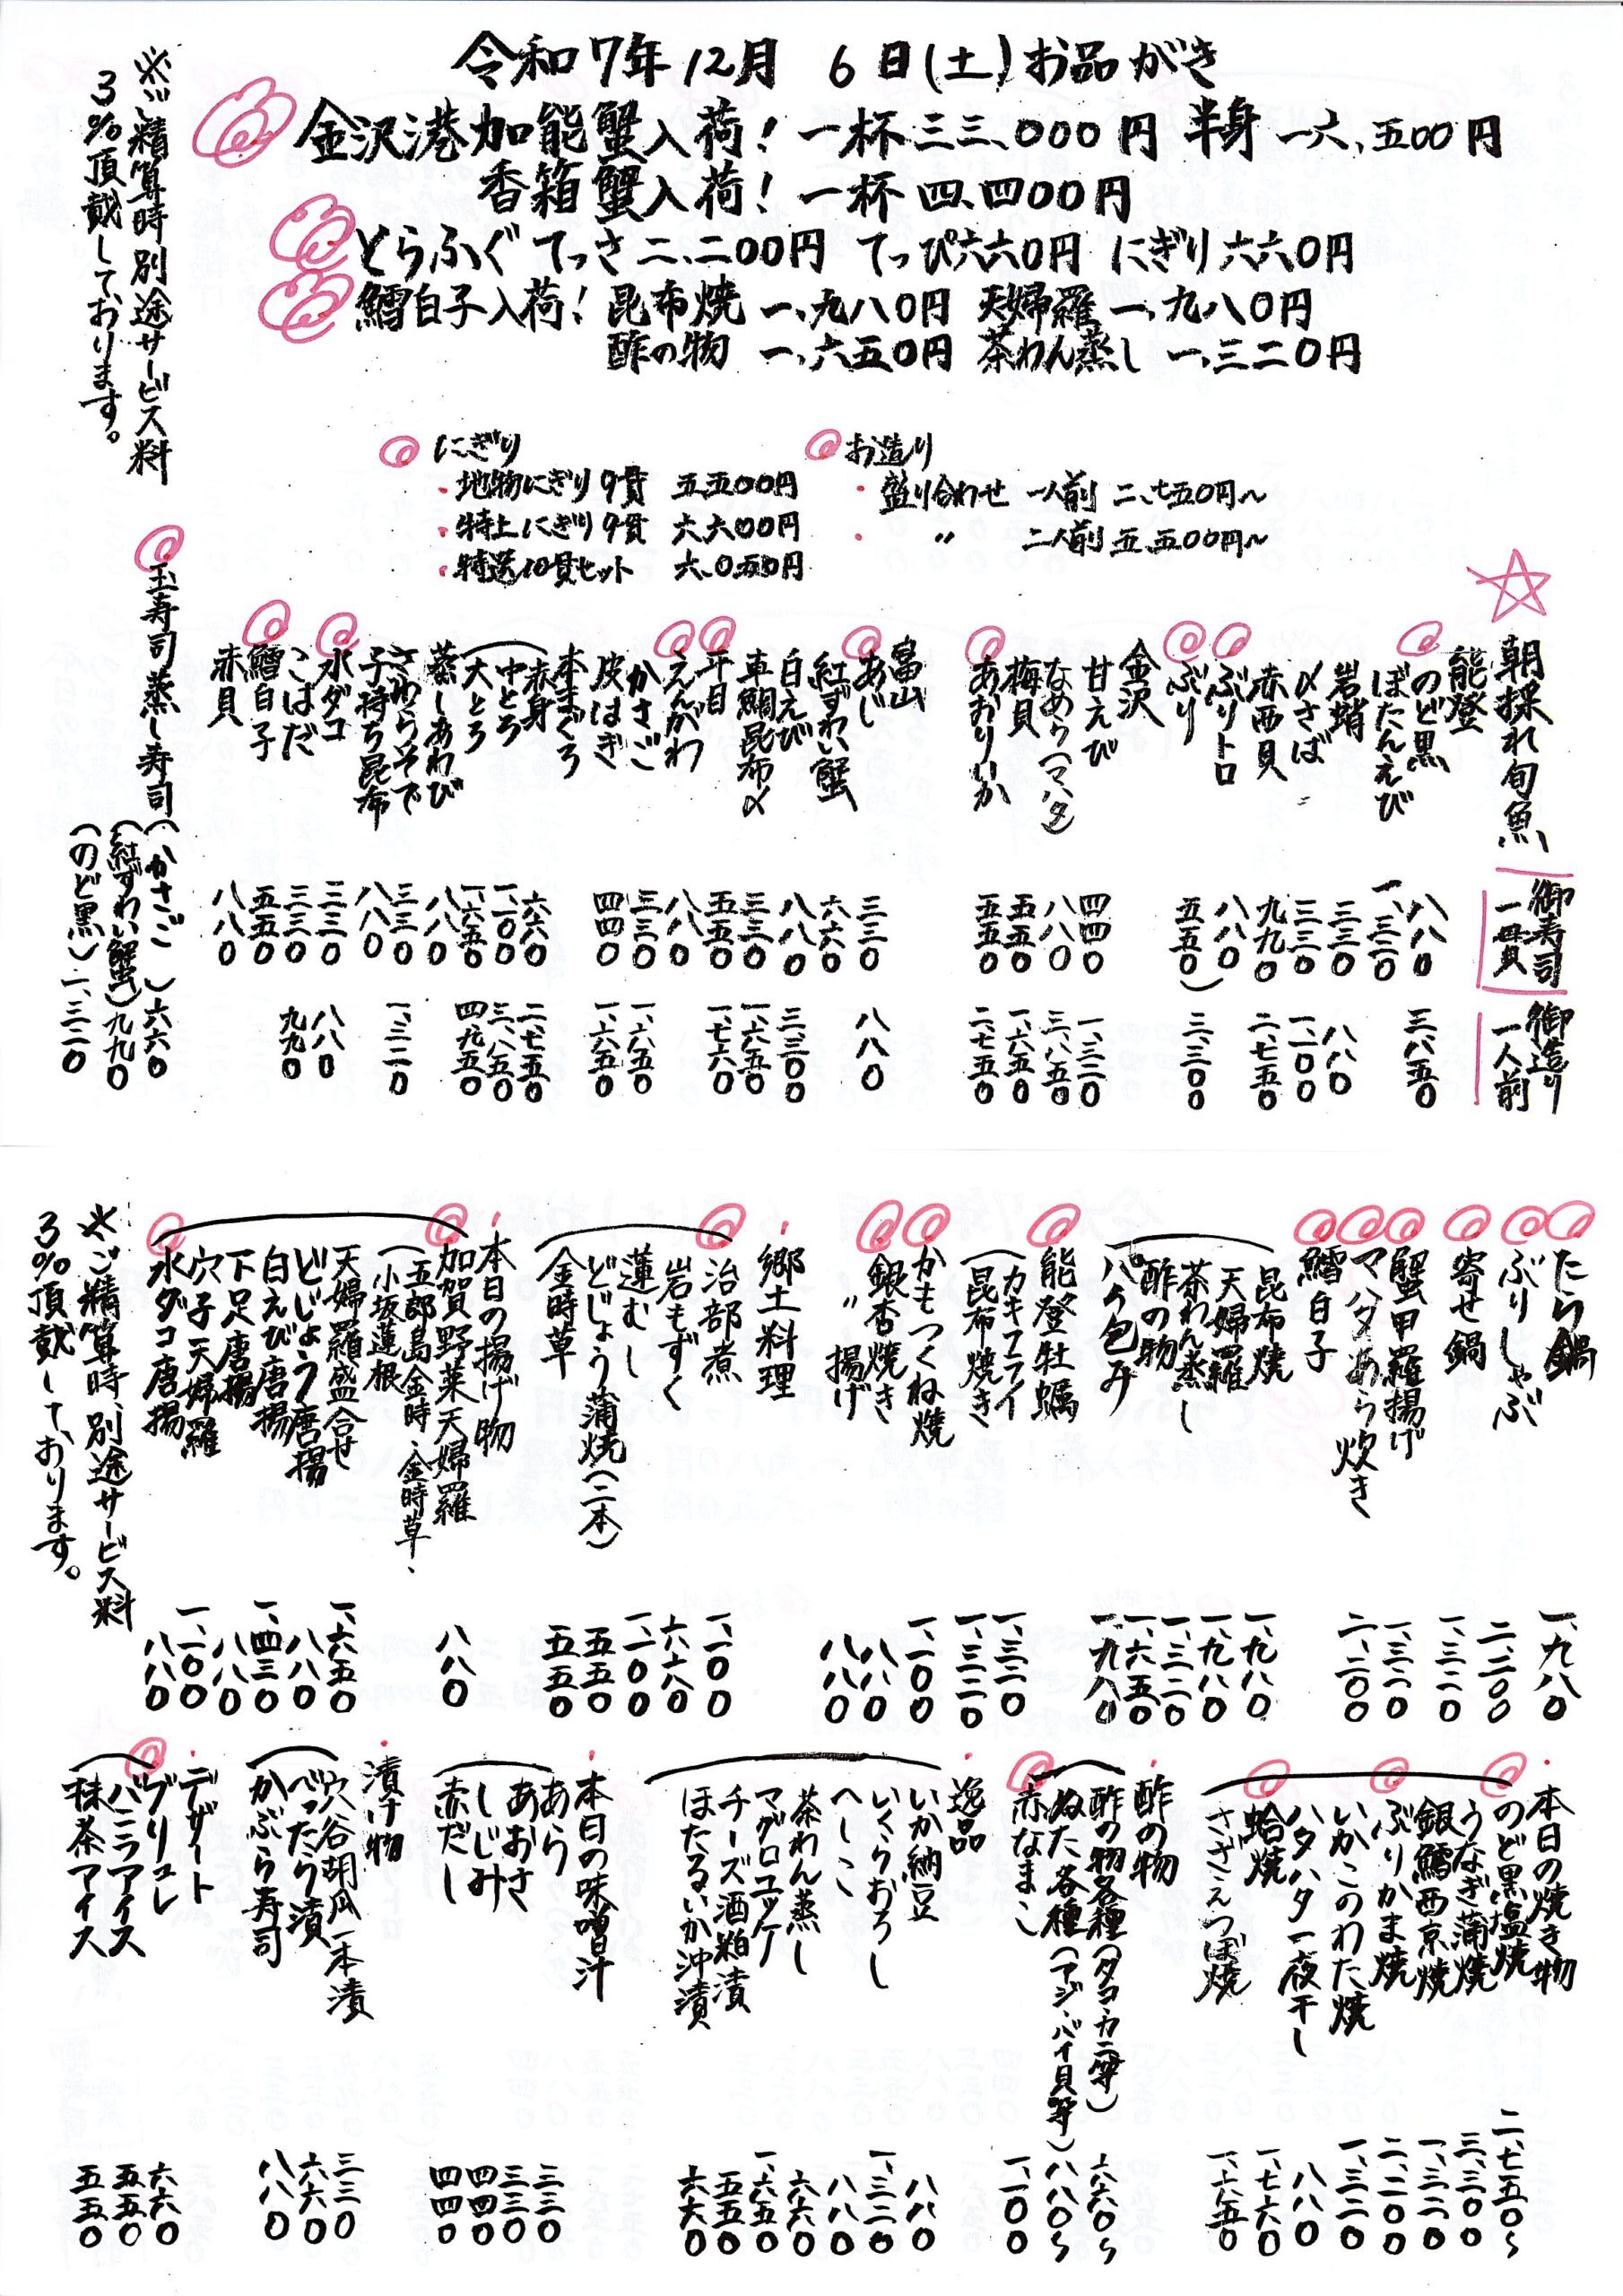 令和7年12月 6日(土)お品がき
金沢港加能蟹入荷! 一杯三三、000円 半身 一六、五00円
香箱蟹入荷! 一杯 四、四00円
とらふぐ てっさ 二、二00円 てっぴ六六0円 にぎり六六0円
鱈白子入荷! 昆布焼 一、九八0円 天婦羅 一、九八0円
酢の物 一、六五0円 茶わん蒸し 一、三二0円
にぎり
・地物にぎり9貫 五五00円
・特上にぎり9貫 六六00円
・特選10貫セット 六、0五0円
お造り
・盛り合わせ 一人前 二、七五0円〜
・ 〃 二人前 五、五00円〜
☆朝採れ旬魚 御寿司一貫 御造り一人前
能登
のど黒 八八0 三、八五0
ぼたんえび 一、三二0
岩蛸 三三0 八八0
〆さば 三三0 一、一00
赤西貝 九九0 二、七五0
ぶりトロ 八八0
ぶり 五五0 三、三00
金沢
甘えび 四四0 一、三二0
なめら(マハタ) 八八0 三、八五0
梅貝 五五0 一、六五0
あおりいか 五五0 二、七五0
富山
あじ 三三0 八八0
紅ずわい蟹 六六0
白えび 八八0 三、三00
車鯛昆布〆 三三0 一、六五0
平目 五五0 一、七六0
えんがわ 八八0
かさご 三三0 一、六五0
皮はぎ 四四0 一、六五0
本まぐろ
赤身 六六0 二、七五0
中とろ 一、一00 三、八五0
大とろ 一、六五0 四、九五0
蒸しあわび 八八0
さわらそで 三三0 一、三二0
子持ち昆布 八八0
水ダコ 三三0 八八0
こはだ 三三0 九九0
鱈白子 五五0
赤貝 八八0
玉寿司 蒸し寿司 (かさご) 六六0
(紅ずわい蟹) 九九0
(のど黒) 一、三二0
※ご精算時別途サービス料
3%頂戴しております。
たら鍋 一、九八0
ぶりしゃぶ 二、二00
寄せ鍋 一、三二0
蟹甲羅揚げ 一、三二0
マハタあら炊き 二、二00
鱈白子
昆布焼 一、九八0
天婦羅 一、九八0
茶わん蒸し 一、三二0
酢の物 一、六五0
パイ包み 一、九八0
能登牡蠣
カキフライ 一、三二0
昆布焼き 一、三二0
かもつくね焼 一、一00
銀杏焼き 八八0
〃 揚げ 八八0
・郷土料理
治部煮 一、一00
岩もずく 六六0
蓮むし 一、一00
どじょう蒲焼(二本) 五五0
金時草 五五0
・本日の揚げ物
加賀野菜天婦羅 八八0
(五郎島金時、金時草、
小坂蓮根)
天婦羅盛合せ 一、六五0
どじょう唐揚 八八0
白えび唐揚 一、四三0
下足唐揚 八八0
穴子天婦羅 一、一00
水ダコ唐揚 八八0
※ご精算時、別途サービス料
3%頂戴しております。
・本日の焼き物
のど黒塩焼 二、七五0〜
うなぎ蒲焼 三、三00
銀鱈西京焼 一、三二0
ぶりかま焼 二、二00
いかこのわた焼 一、三二0
ハタハタ一夜干し 八八0
蛤焼 一、七六0
さざえつぼ焼 一、六五0
・酢の物
酢の物各種(タコ・カニ等) 六六0〜
ぬた各種(アジ・バイ貝等) 八八0〜
赤なまこ 一、一00
・逸品
いか納豆 八八0
いくらおろし 一、三二0
へしこ 八八0
茶わん蒸し 六六0
マグロユッケ 一、六五0
チーズ酒粕漬 五五0
ほたるいか沖漬 六六0
・本日の味噌汁
あら 三三0
あおさ 三三0
しじみ 四四0
赤だし 四四0
・漬け物
穴谷胡瓜一本漬 三三0
べったら漬 六六0
かぶら寿司 八八0
・デザート
ブリュレ 六六0
バニラアイス 五五0
抹茶アイス 五五0